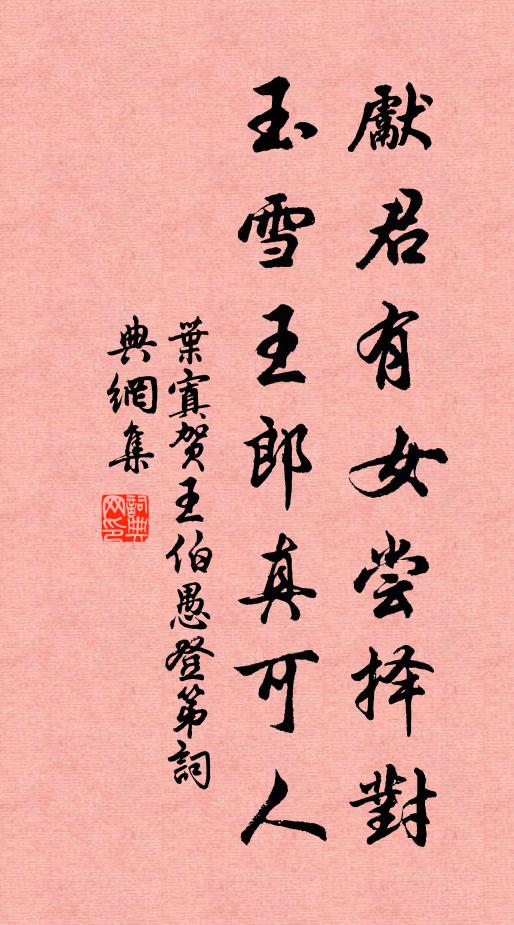 獻君有女尝择對
玉雪王郎真可人
葉寘贺王伯愚登第詞
典網集
詞典网印